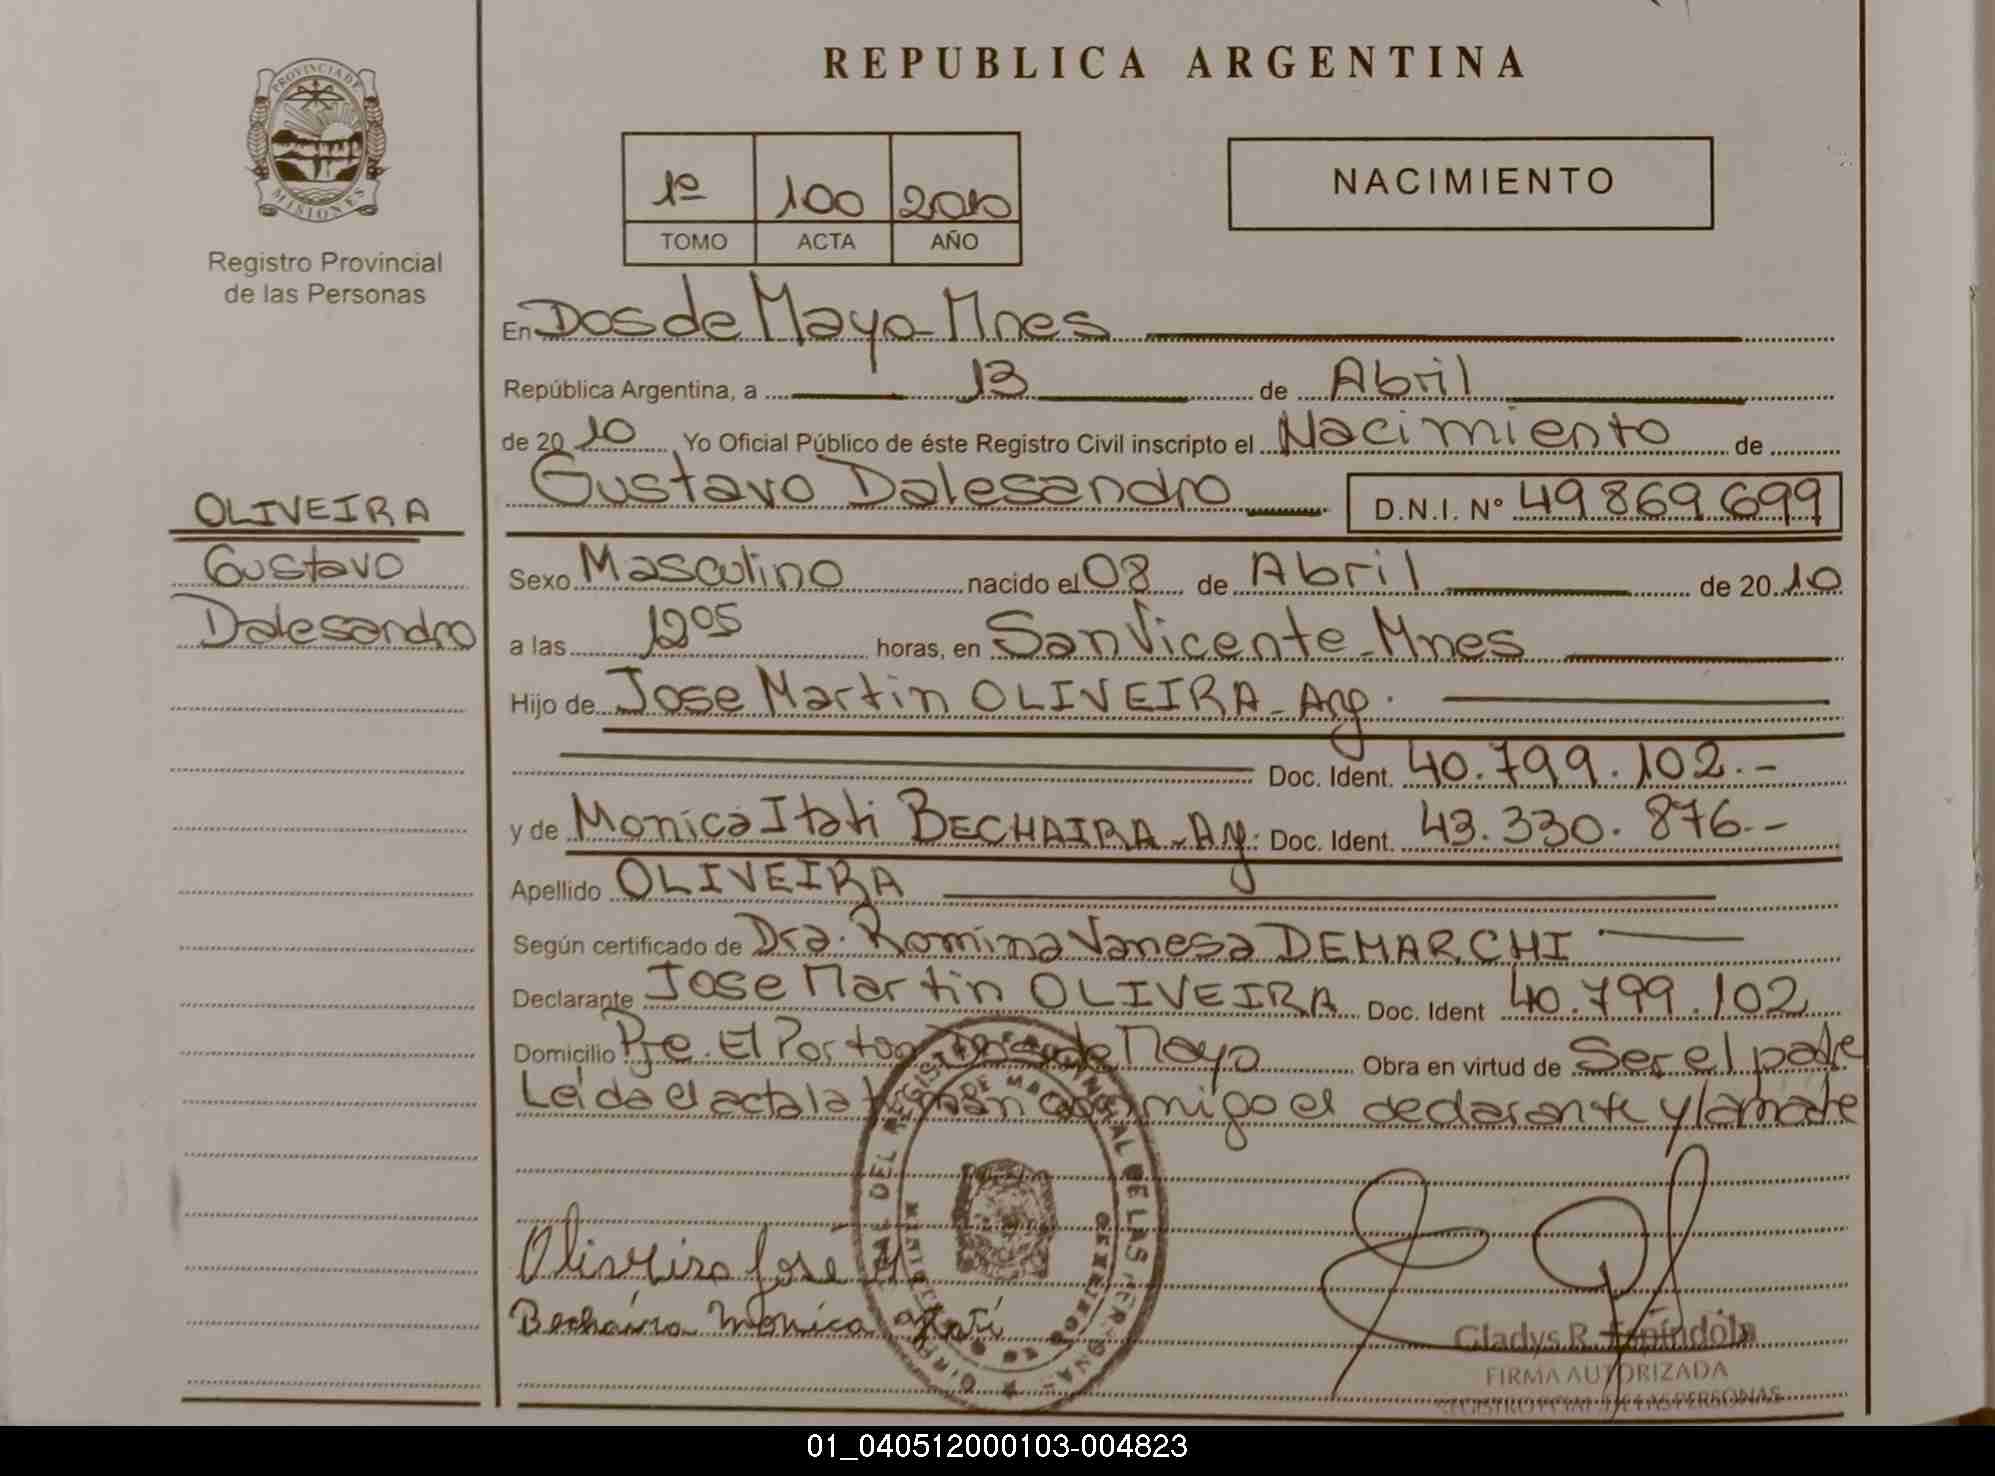 REPUBLICA ARGENTINA
PROVINCIA DE
MISIONES
Registro Provincial
de las Personas
1º 100 2010
TOMO ACTA AÑO
NACIMIENTO
En Dos de Mayo - Mnes
República Argentina, a 13 de Abril
de 20 10 Yo Oficial Público de éste Registro Civil inscripto el Nacimiento de
Gustavo Dalesandro D.N.I. N° 49869699
OLIVEIRA
Gustavo
Dalesandro
Sexo Masculino nacido el 08 de Abril de 20 10
a las 12 05 horas, en San Vicente - Mnes
Hijo de Jose Martin OLIVEIRA - Arg.
Doc. Ident. 40.799.102.-
y de Monica Itati BECHAIRA - Arg. Doc. Ident. 43.330.876.-
Apellido OLIVEIRA
Según certificado de Dra. Romina Vanesa DEMARCHI
Declarante Jose Martin OLIVEIRA Doc. Ident 40.799.102
Domicilio Pje. El Porton Dos de Mayo Obra en virtud de Ser el padre
Leida el acta la firman conmigo el declarante y la madre
Oliveira José M
Bechaira Monica Itatí
Gladys R. Espíndola
FIRMA AUTORIZADA
REGISTRO PCIAL. DE LAS PERSONAS
01_040512000103-004823